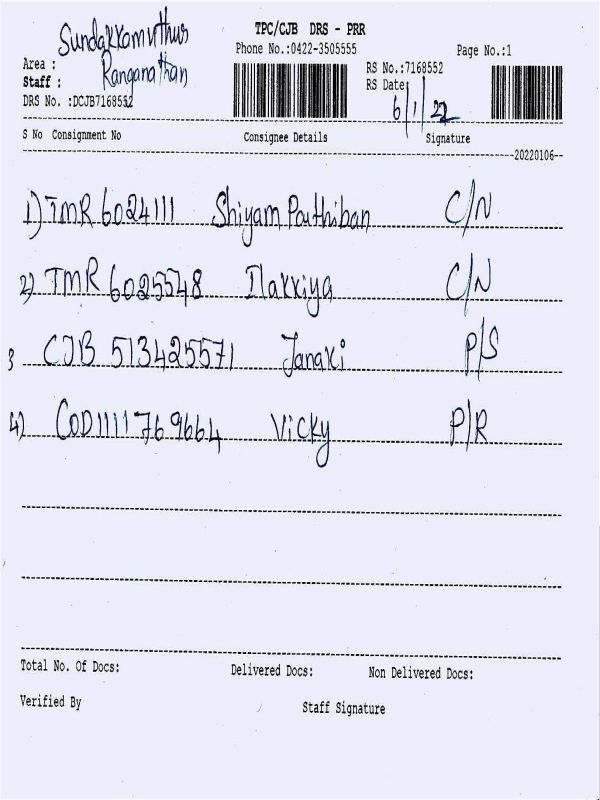 TPC/CJB DRS - PRR
Phone No.:0422-3505555
Page No.:1
Area : Sundakkamuthur
Staff : Ranganathan
RS No.:7168552
RS Date: 6/1/22
DRS No. :DCJB7168552
S No Consignment No Consignee Details Signature
20220106
1) TMR 6024111 Shiyam Parthiban C/N
2) TMR 6025548 Ilakkiya C/N
3 CJB 513425571 Janaki P/S
4) COD1111769664 Vicky P/R
Total No. Of Docs: Delivered Docs: Non Delivered Docs:
Verified By Staff Signature